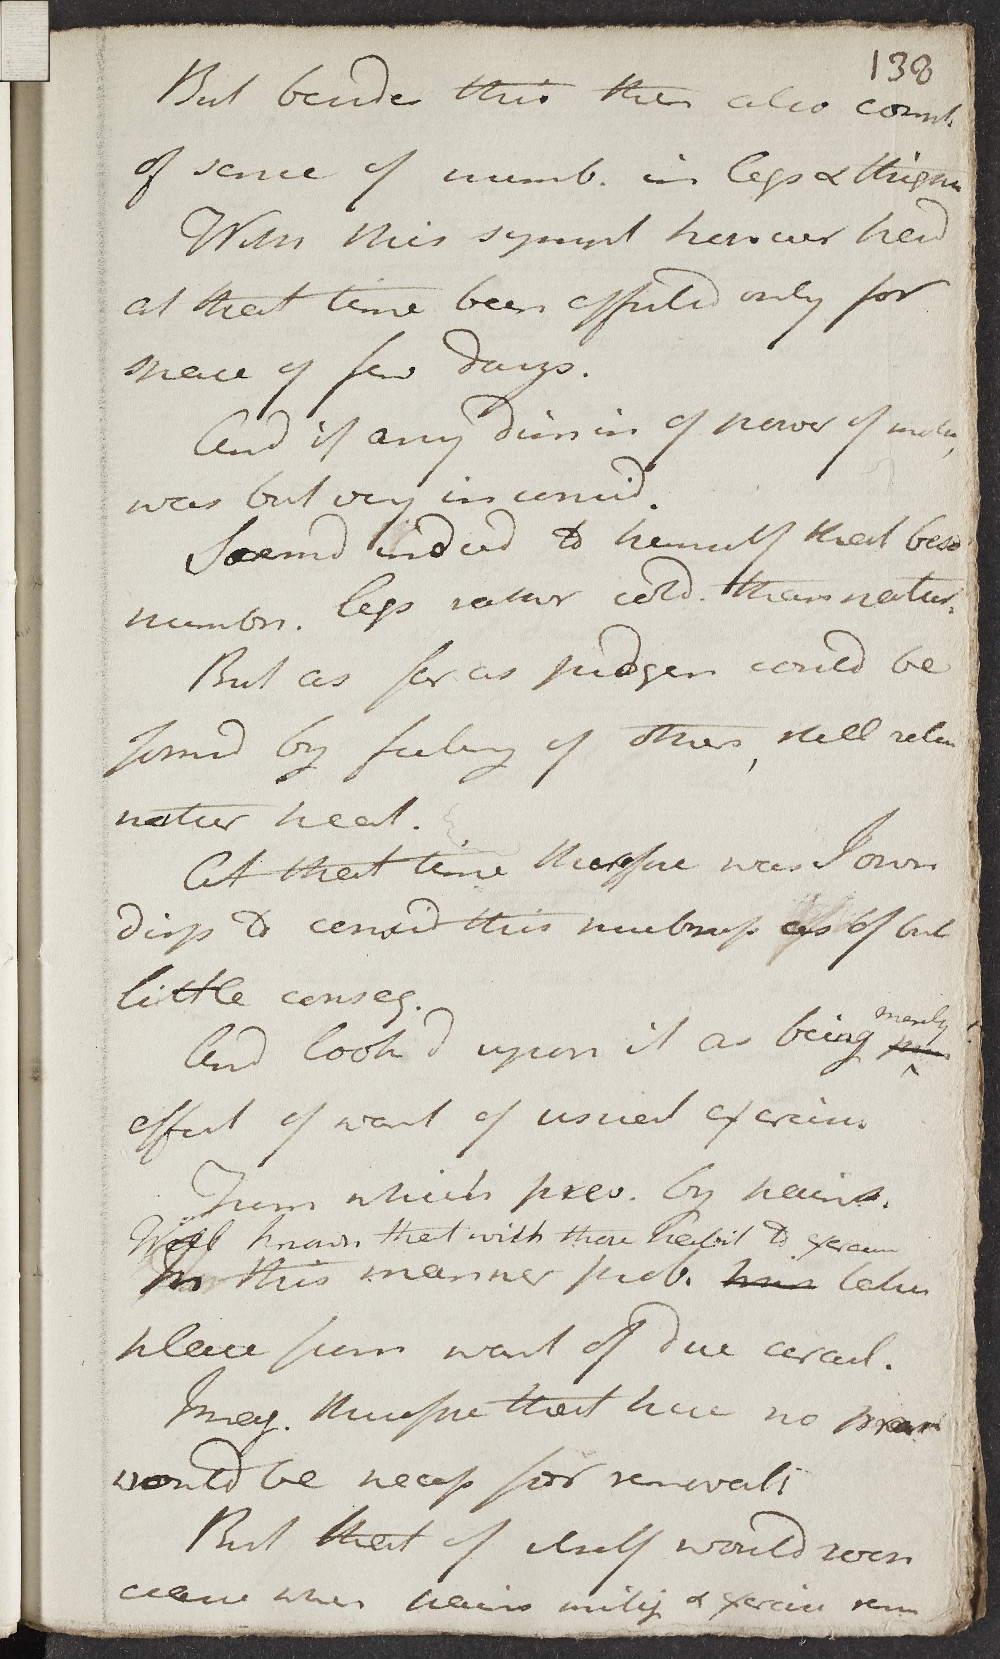 138
But besides this then also compl.
of sense of numb. in legs & thighs
With this sympt however had
at that time been afflicted only for
space of few days.
And if any dimin of power of motn,
was but very in consid.
Seemd indeed to himself that besd
numbn. legs rather cold. than natur.
But as far as judgen could be
formd by feeling of others, still retn
natur heat.
At that time therefore was I own
disp to consid this numbness as of but
little conseq.
And look'd upon it as being
merely
effect of want of usual exercise
From which prev. by pains.
Well known that with those habit to exercise
In this manner prob. his taken
place from want of due
Imag. therefore that here no
would be necess for removal
But that of itself would soon
cease when pains mitig & exercise